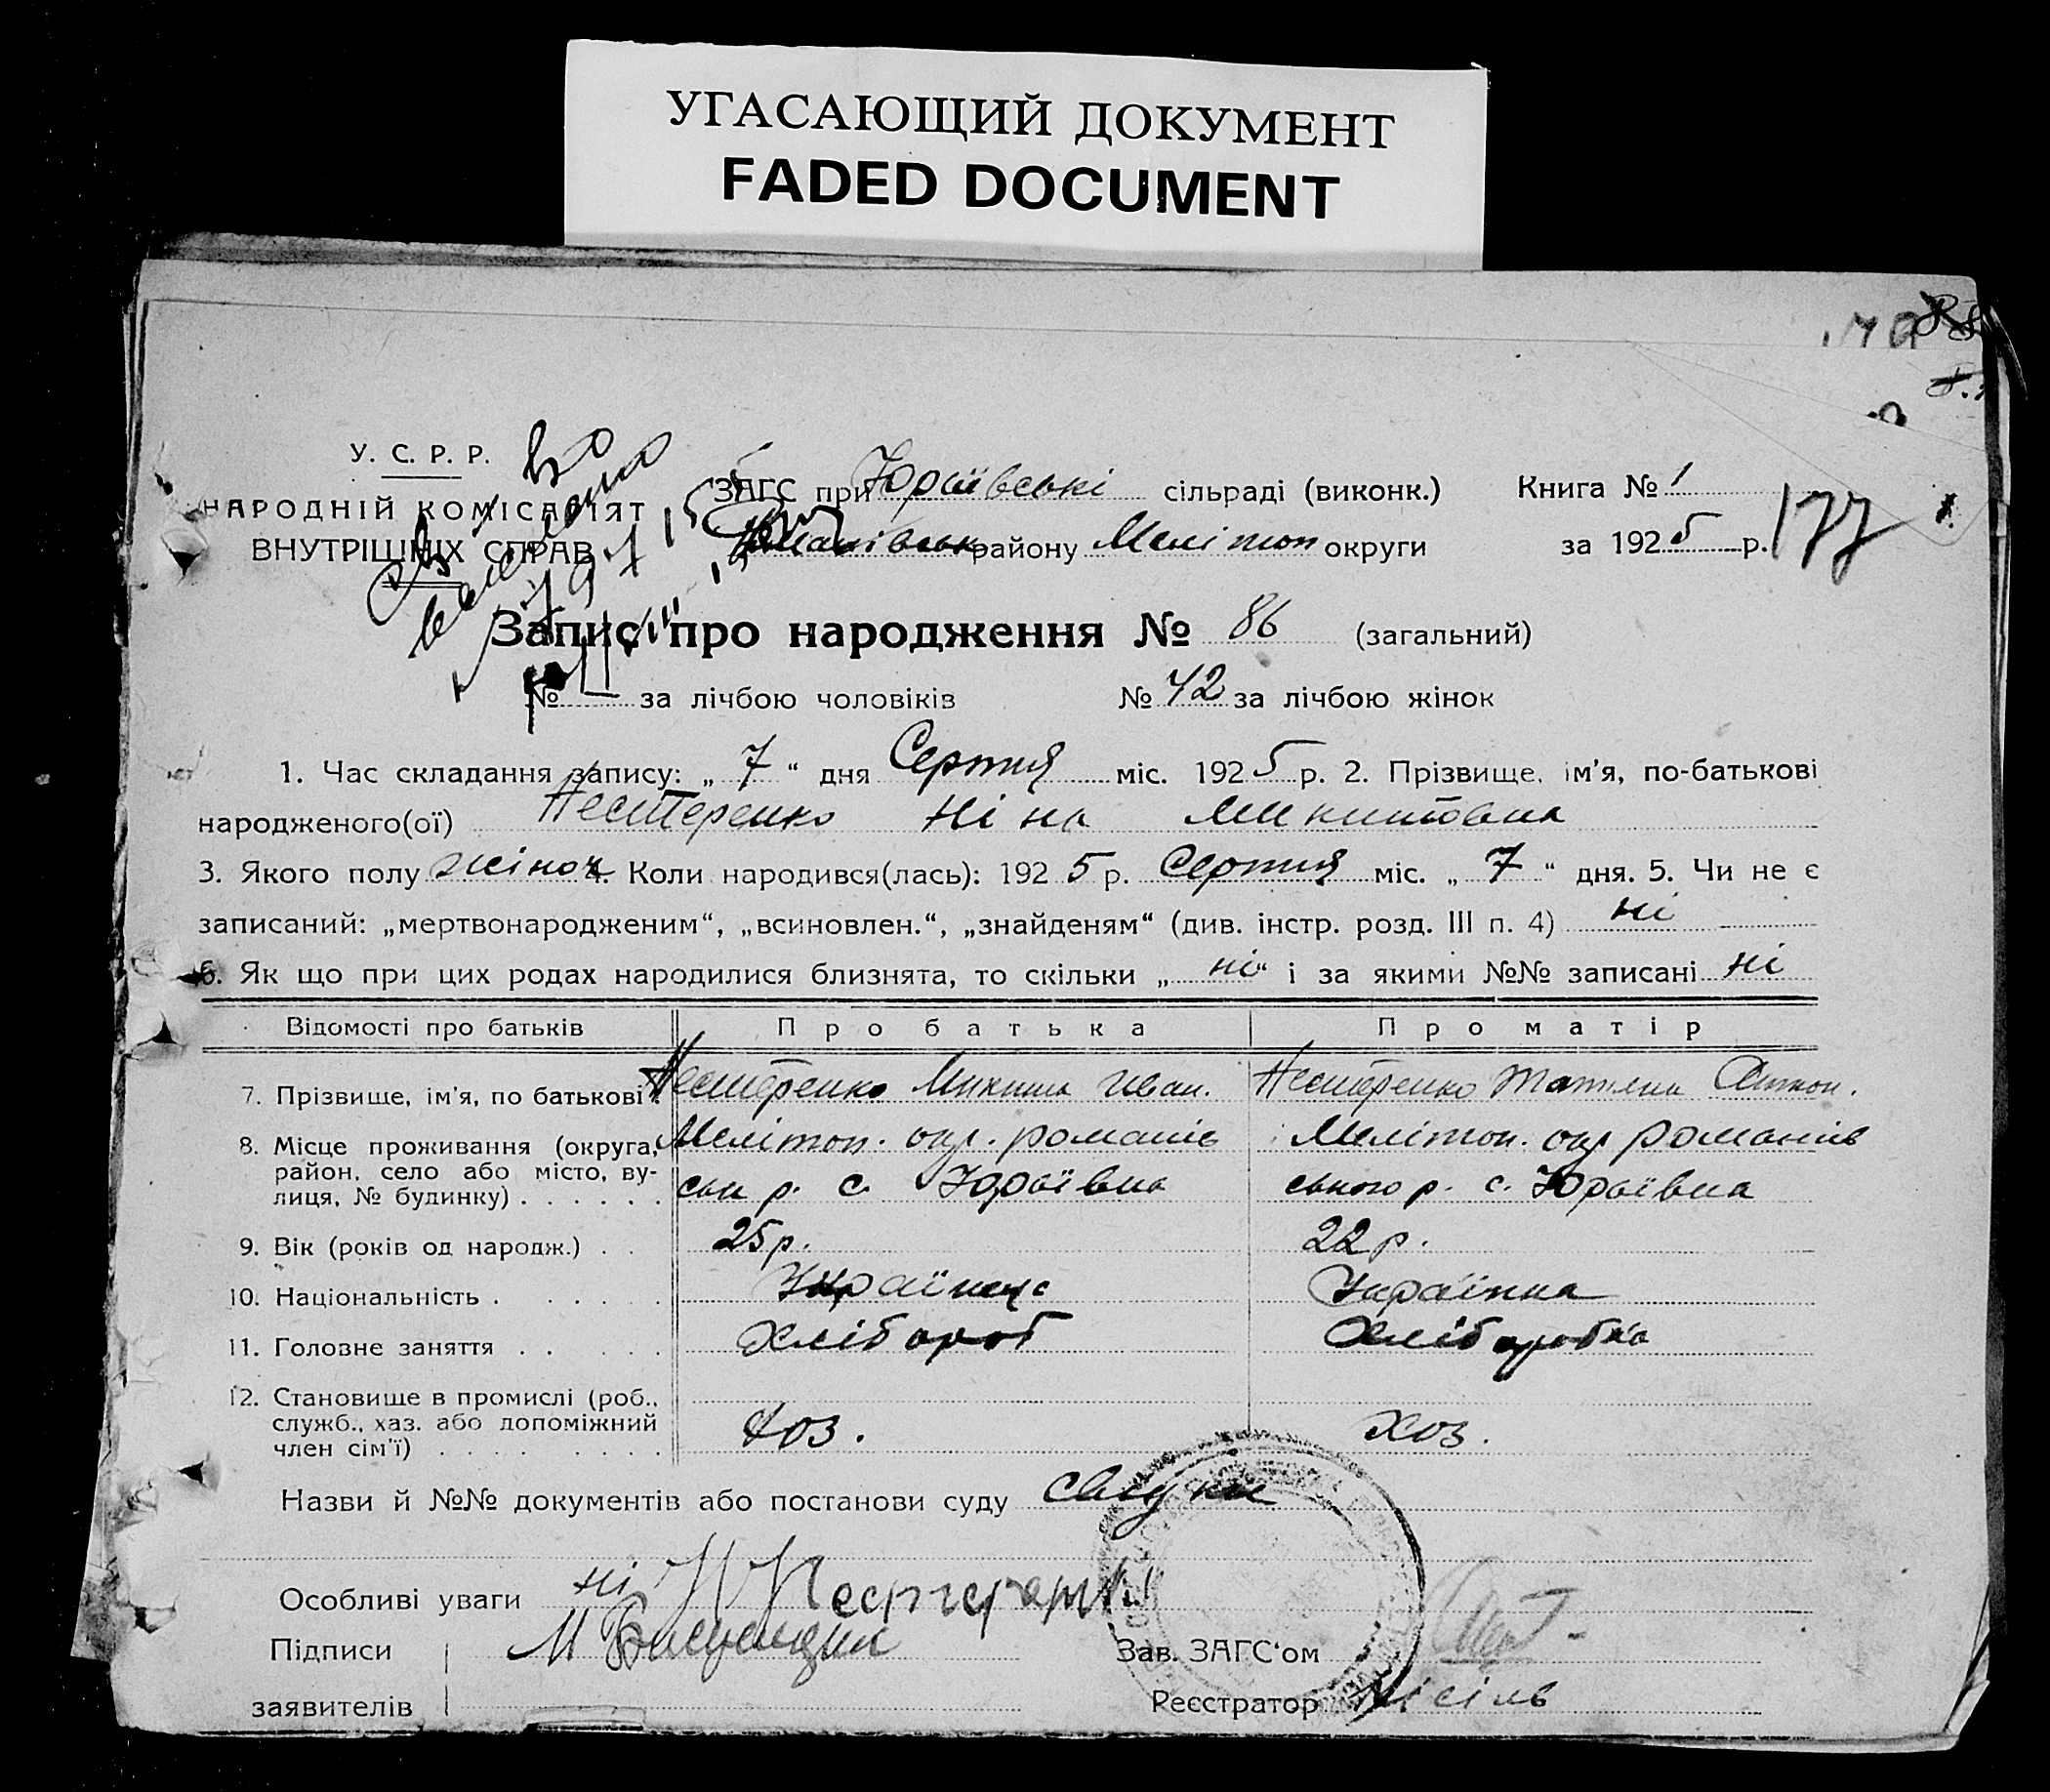 УГАСАЮЩИЙ ДОКУМЕНТ
FADED DOCUMENT
У. С. Р. Р.
НАРОДНІЙ КОМІСАРІЯТ
ВНУТРІШНІХ СПРАВ
ЗАГС при Юраївські сільраді (виконк.)
Книга № 1
району Мелітоп округи
за 1925 р.
177
Запис про народження № 86 (загальний)
№ — за лічбою чоловіків № 42 за лічбою жінок
1. Час складання запису: „ 7 “ дня Серпня міс. 1925 р. 2. Прізвище, ім'я, по-батькові
народженого(ої) Нестеренко Ніна Микитовна
3. Якого полу жіноч 4. Коли народився(лась): 1925 р. Серпня міс. „ 7 “ дня. 5. Чи не є
записаний: „мертвонародженим“, „всиновлен.“, „знайденям“ (див. інстр. розд. III п. 4) ні
6. Як що при цих родах народилися близнята, то скільки „ ні “ і за якими №№ записані ні
Відомості про батьків Про батька Про матір
7. Прізвище, ім'я, по батькові . Нестеренко Микита Иван. Нестеренко Татьяна Антон.
8. Місце проживання (округа, Мелітоп. окр. романів Мелітоп. окр романів
район, село або місто, ву-
лиця, № будинку) . . . . . . ськ р. с. Юраївка ського р. с. Юраївка
9. Вік (років од народж.) . . 25 р. 22 р.
10. Національність . . . . . Українець Українка
11. Головне заняття . . . . . Хлібороб Хліборобка
12. Становище в промислі (роб.,
служб., хаз. або допоміжний
член сім'ї) . . . . . . . . хоз. хоз.
Назви й №№ документів або постанови суду
Особливі уваги ні
Підписи
Зав. ЗАГС'ом
заявителів
Реєстратор Кісіль